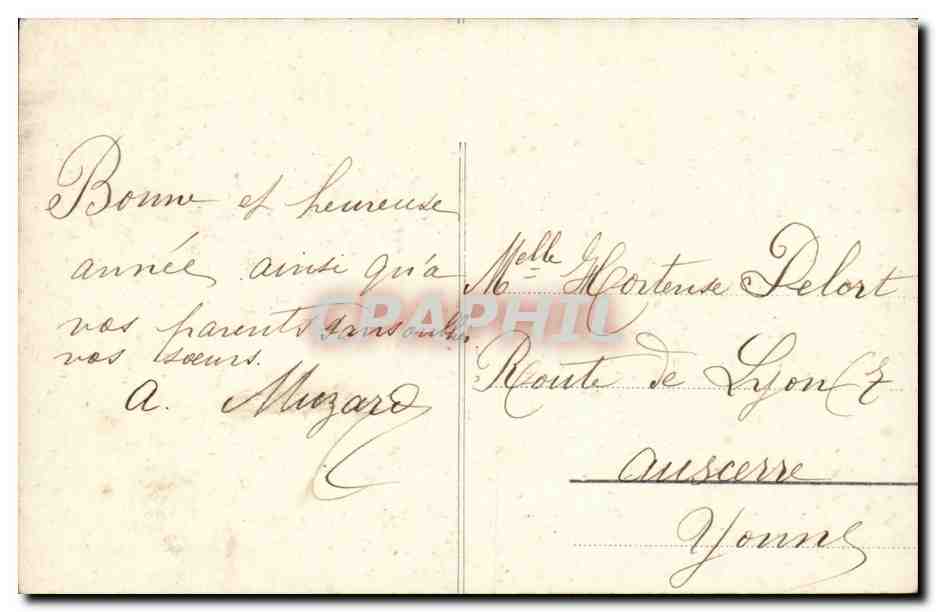 Bonne et heureuse
année ainsi qu'a
vos parents sans oublier
vos sœurs.
A. Muzard
Melle Hortense Delort
Route de Lyon 7
Auscerre
Yonne
CPAPHIL